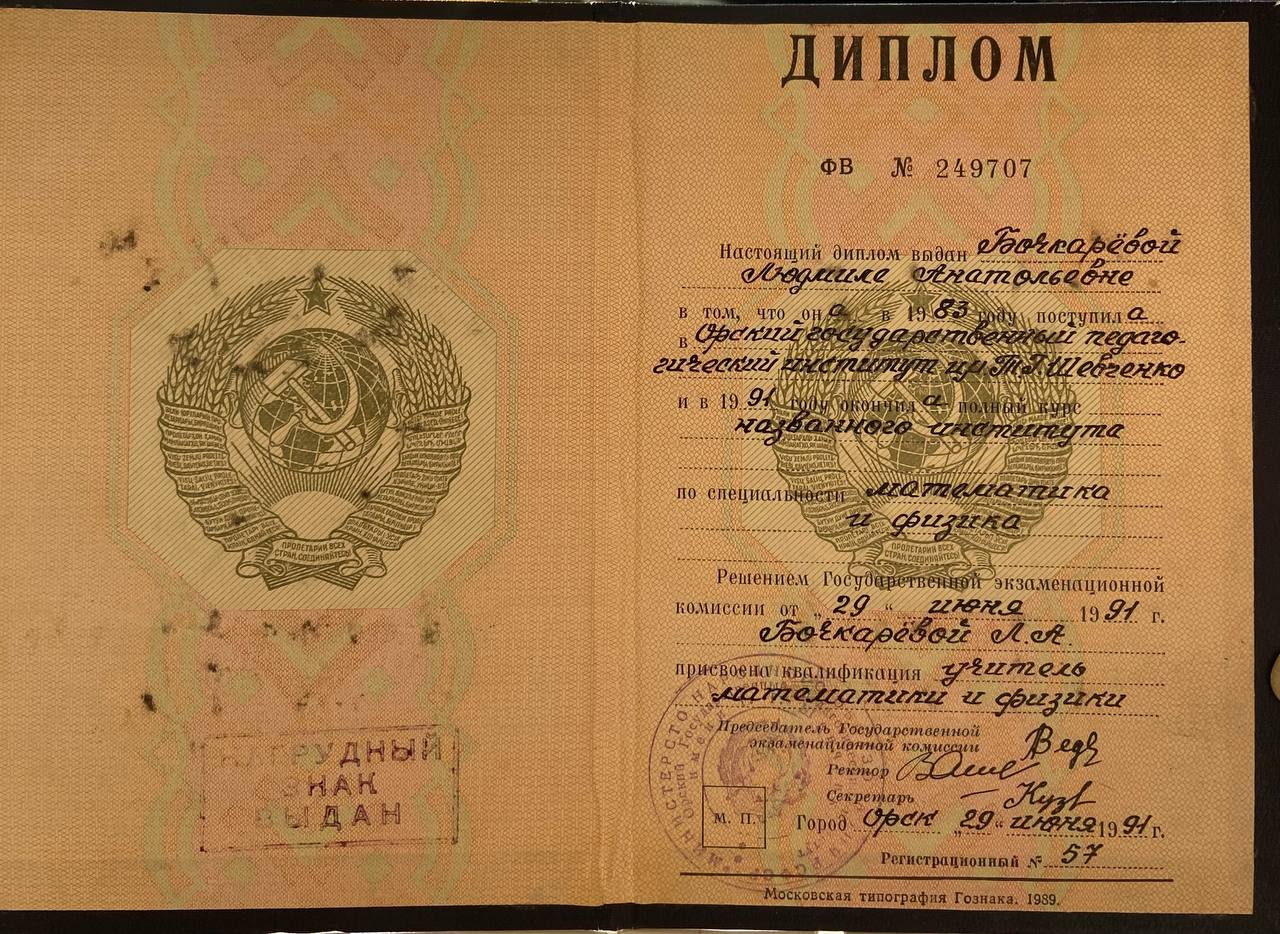 ПРОЛЕТАРИИ ВСЕХ
СТРАН, СОЕДИНЯЙТЕСЬ!
НАГРУДНЫЙ
ЗНАК
ВЫДАН
ДИПЛОМ
ФВ № 249707
Настоящий диплом выдан Бочкарёвой
Людмиле Анатольевне
в том, что она в 1983 году поступила
в Орский государственный педаго-
гический институт им. Т. Г. Шевченко
и в 1991 году окончила полный курс
названного института
по специальности математика
и физика
Решением Государственной экзаменационной
комиссии от „29“ июня 1991 г.
Бочкарёвой Л. А.
присвоена квалификация учитель
математики и физики
Председатель Государственной
экзаменационной комиссии
Ректор
Секретарь
М. П.
Город Орск „29“ июня 1991 г.
Регистрационный № 57
Московская типография Гознака. 1989.